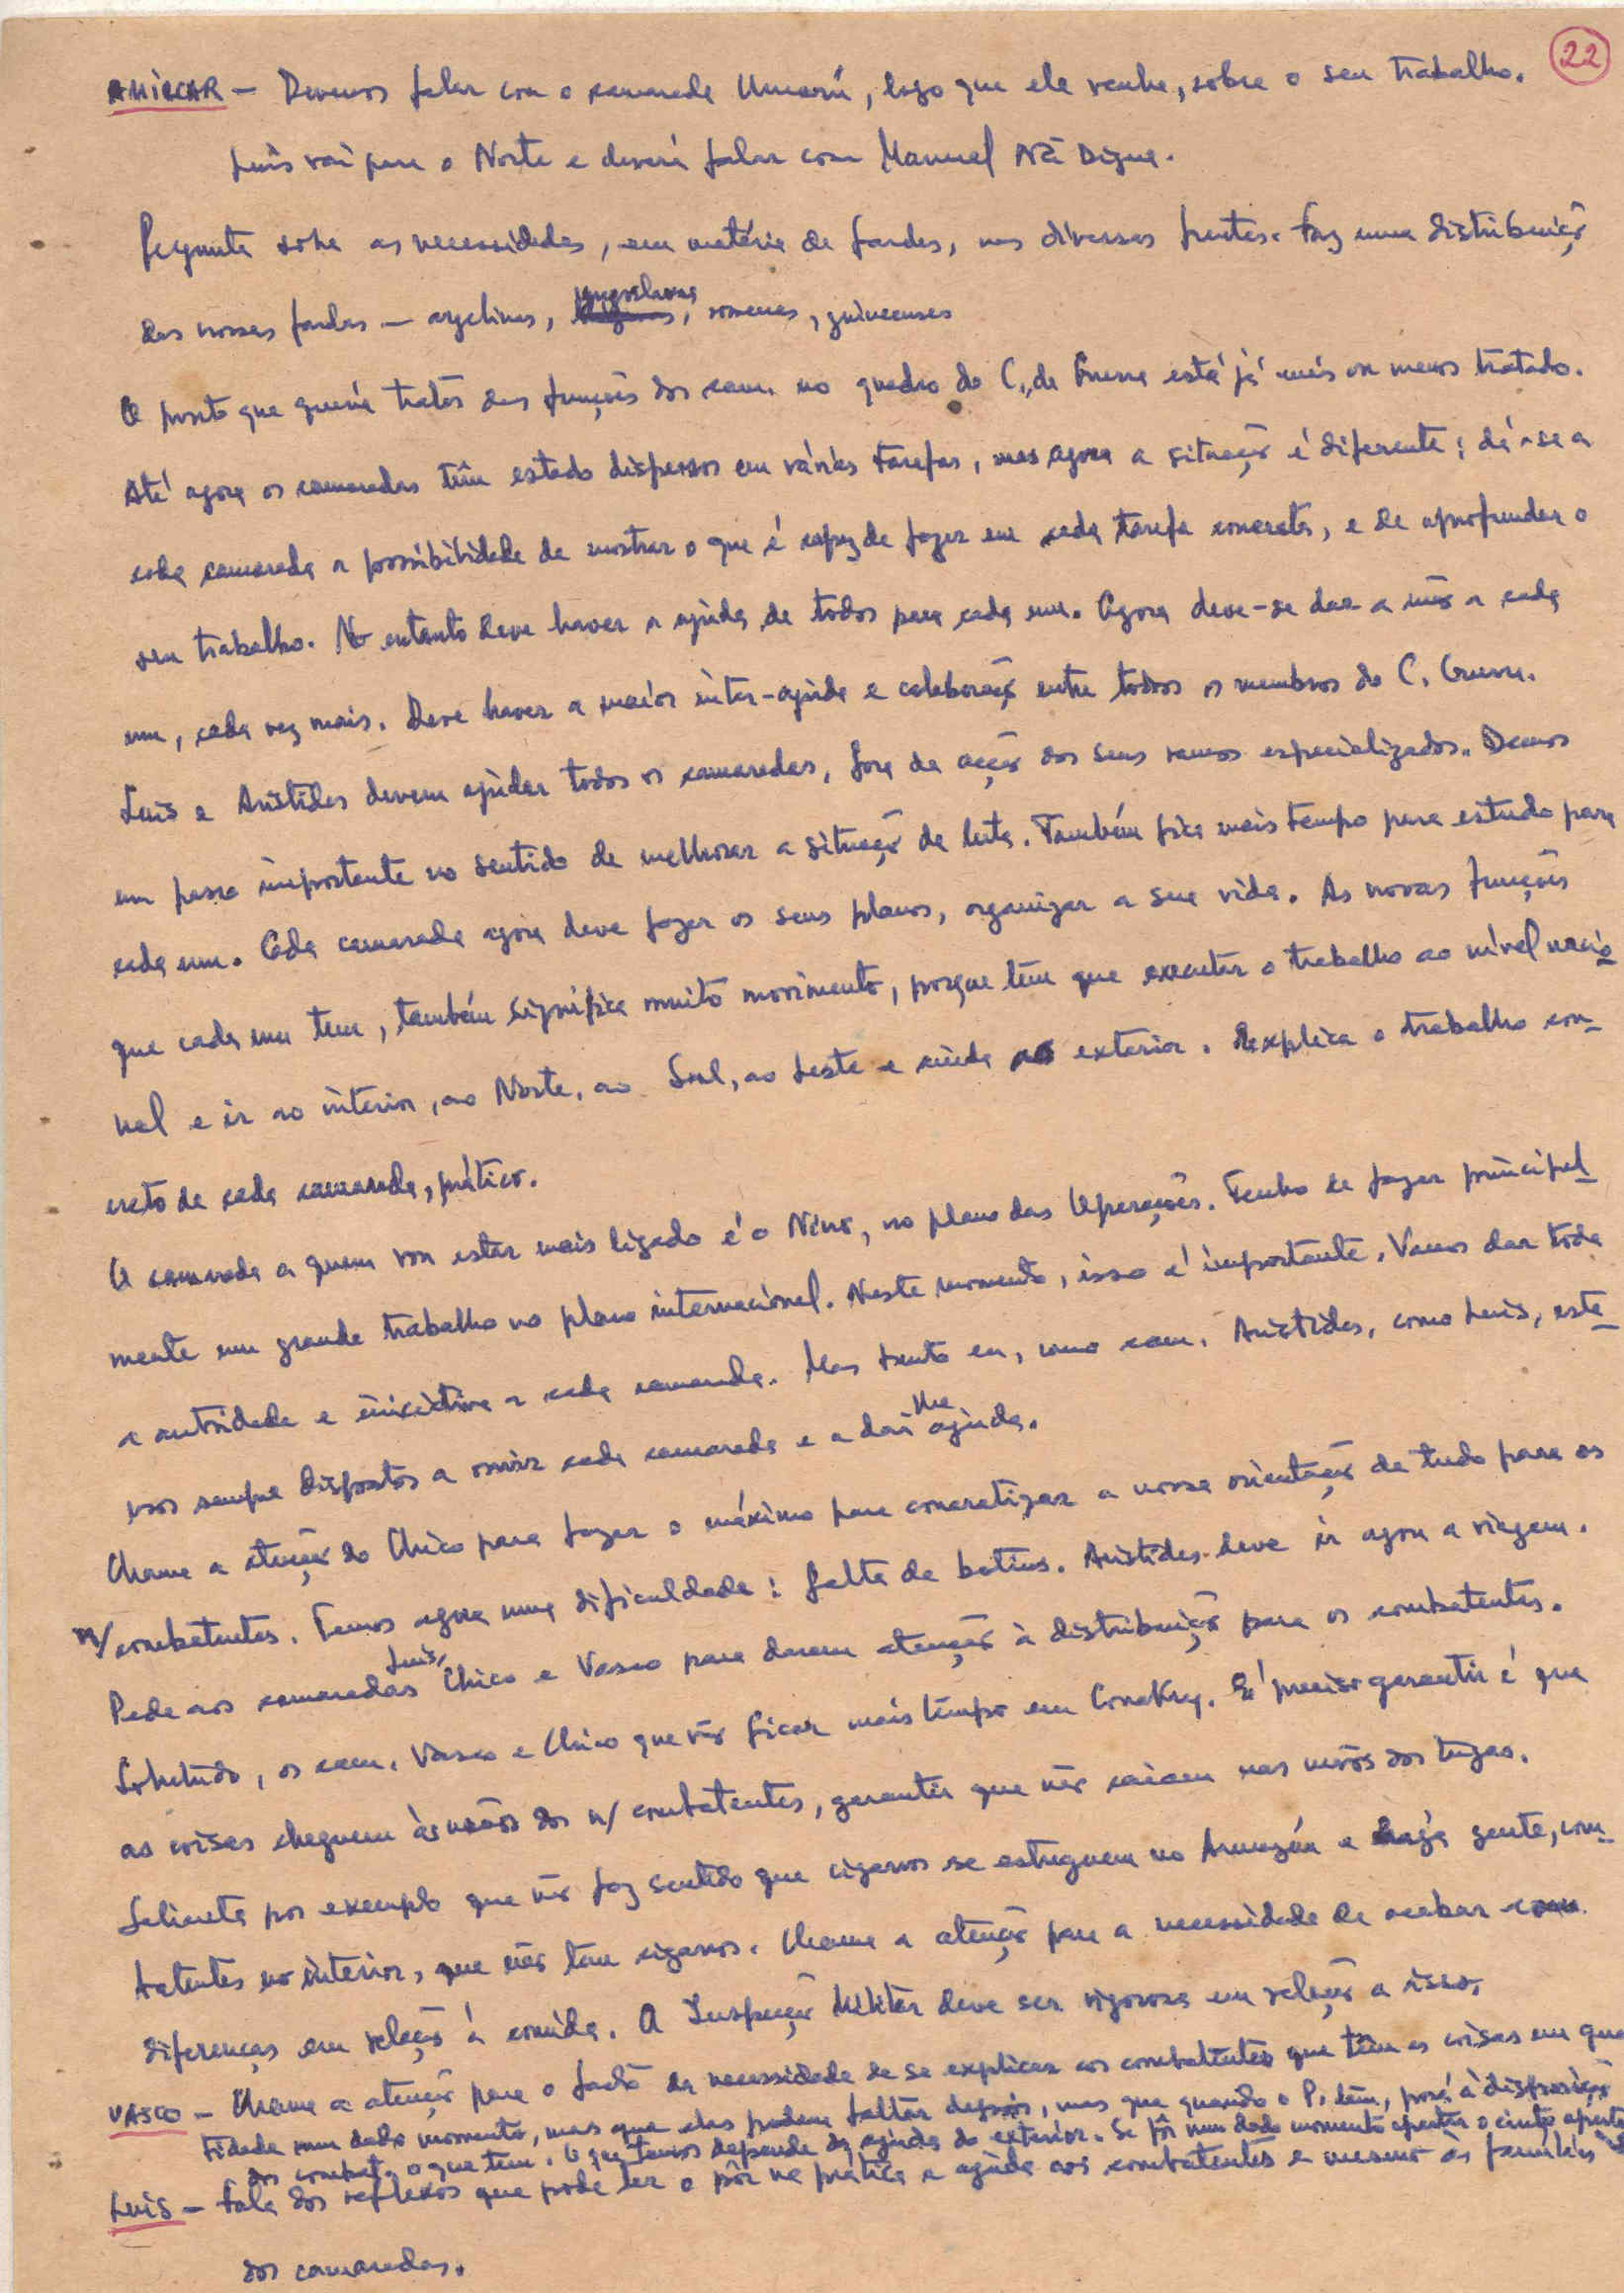 22
AMÍLCAR — Devemos falar com o camarada Umarú, logo que ele venha, sobre o seu trabalho.
Luís vai para o Norte e deverá falar com Manuel Nã Digna.
Pergunta sobre as necessidades, em matéria de fardas, nas diversas frentes. Faz uma distribuição
das nossas fardas — argelinas, jugoslavas, romenas, guineenses
O ponto que queria tratar das funções dos cam. no quadro do C. de Guerra está já mais ou menos tratado.
Até agora os camaradas têm estado dispersos em várias tarefas, mas agora a situação é diferente; dá-se a
cada camarada a possibilidade de mostrar o que é capaz de fazer em cada tarefa concreta, e de aprofundar o
seu trabalho. No entanto deve haver a ajuda de todos para cada um. Agora deve-se dar a mão a cada
um, cada vez mais. Deve haver a maior inter-ajuda e colaboração entre todos os membros do C. Guerra.
Luís e Aristides devem ajudar todos os camaradas, fora da acção dos seus ramos especializados. Demos
um passo importante no sentido de melhorar a situação da luta. Também fica mais tempo para estudo para
cada um. Cada camarada agora deve fazer os seus planos, organizar a sua vida. As novas funções
que cada um tem, também significa muito movimento, porque têm que executar o trabalho ao nível nacio
nal e ir ao interior, ao Norte, ao Sul, ao Leste e ainda ao exterior. Explica o trabalho con-
creto de cada camarada, prático.
O camarada a quem vou estar mais ligado é o Nino, no plano das Operações. Tenho de fazer principal
mente um grande trabalho no plano internacional. Neste momento, isso é importante. Vamos dar toda
a autoridade e iniciativa a cada camarada. Mas tanto eu, como cam. Aristides, como Luís, esta
mos sempre dispostos a ouvir cada camarada e a dar lhe ajuda.
Chama a atenção do Chico para fazer o máximo para concretizar a nossa orientação de tudo para os
n/ combatentes. Temos agora uma dificuldade: falta de botins. Aristides deve ir agora a viagem.
Pede aos camaradas Luís, Chico e Vasco para darem atenção à distribuição para os combatentes.
Sobretudo, os cam. Vasco e Chico que vão ficar mais tempo em Conakry. É preciso garantir é que
as coisas cheguem às mãos dos n/ combatentes, garantir que não caiam nas mãos dos tugas.
Salienta por exemplo que não faz sentido que cigarros se estraguem no Armazém e haja gente, com
batentes no interior, que não têm cigarros. Chama a atenção para a necessidade de acabar com
diferenças em relação à comida. A Inspecção Militar deve ser rigorosa em relação a isso.
VASCO — Chama a atenção para o facto da necessidade de se explicar aos combatentes que têm as coisas em quan
tidade num dado momento, mas que elas podem faltar depois, mas que quando o P. têm, porá à disposição
dos combat. o que tem. O que temos depende da ajuda do exterior. Se fôr num dado momento apertar o cinto aperta
LUÍS — Fala dos reflexos que pode ter o pôr na prática a ajuda aos combatentes e mesmo às famílias
dos camaradas.